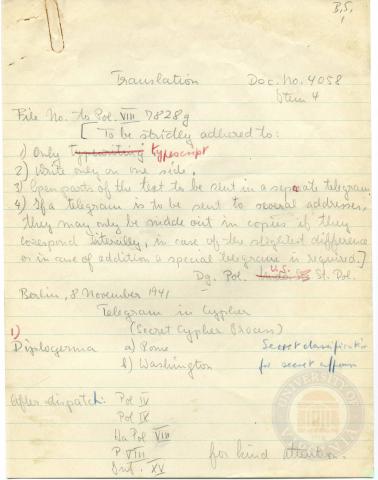 B.S.
1
Translation Doc. No. 4058
Item 4
File No. to Pol. VIII 7828g
[To be strictly adhered to:
1) Only typewriting typescript
2) Write only on one side.
3) Open parts of the text to be sent in a separate telegram.
4) If a telegram is to be sent to several addresses,
they may only be made out in copies if they
correspond literally, in case of the slightest difference
or in case of addition a special telegram is required.]
Dg. Pol. U.S. St. Pol.
Berlin, 8 November 1941
Telegram in Cypher
(Secret Cypher Process)
1)
Diplogerma a) Rome Secret classification
b) Washington for secret affairs
After dispatch: Pol IV
Pol IX
Ha Pol VIII
P VIII
Inf. XV for kind attention.
UNIVERSITY OF VIRGINIA